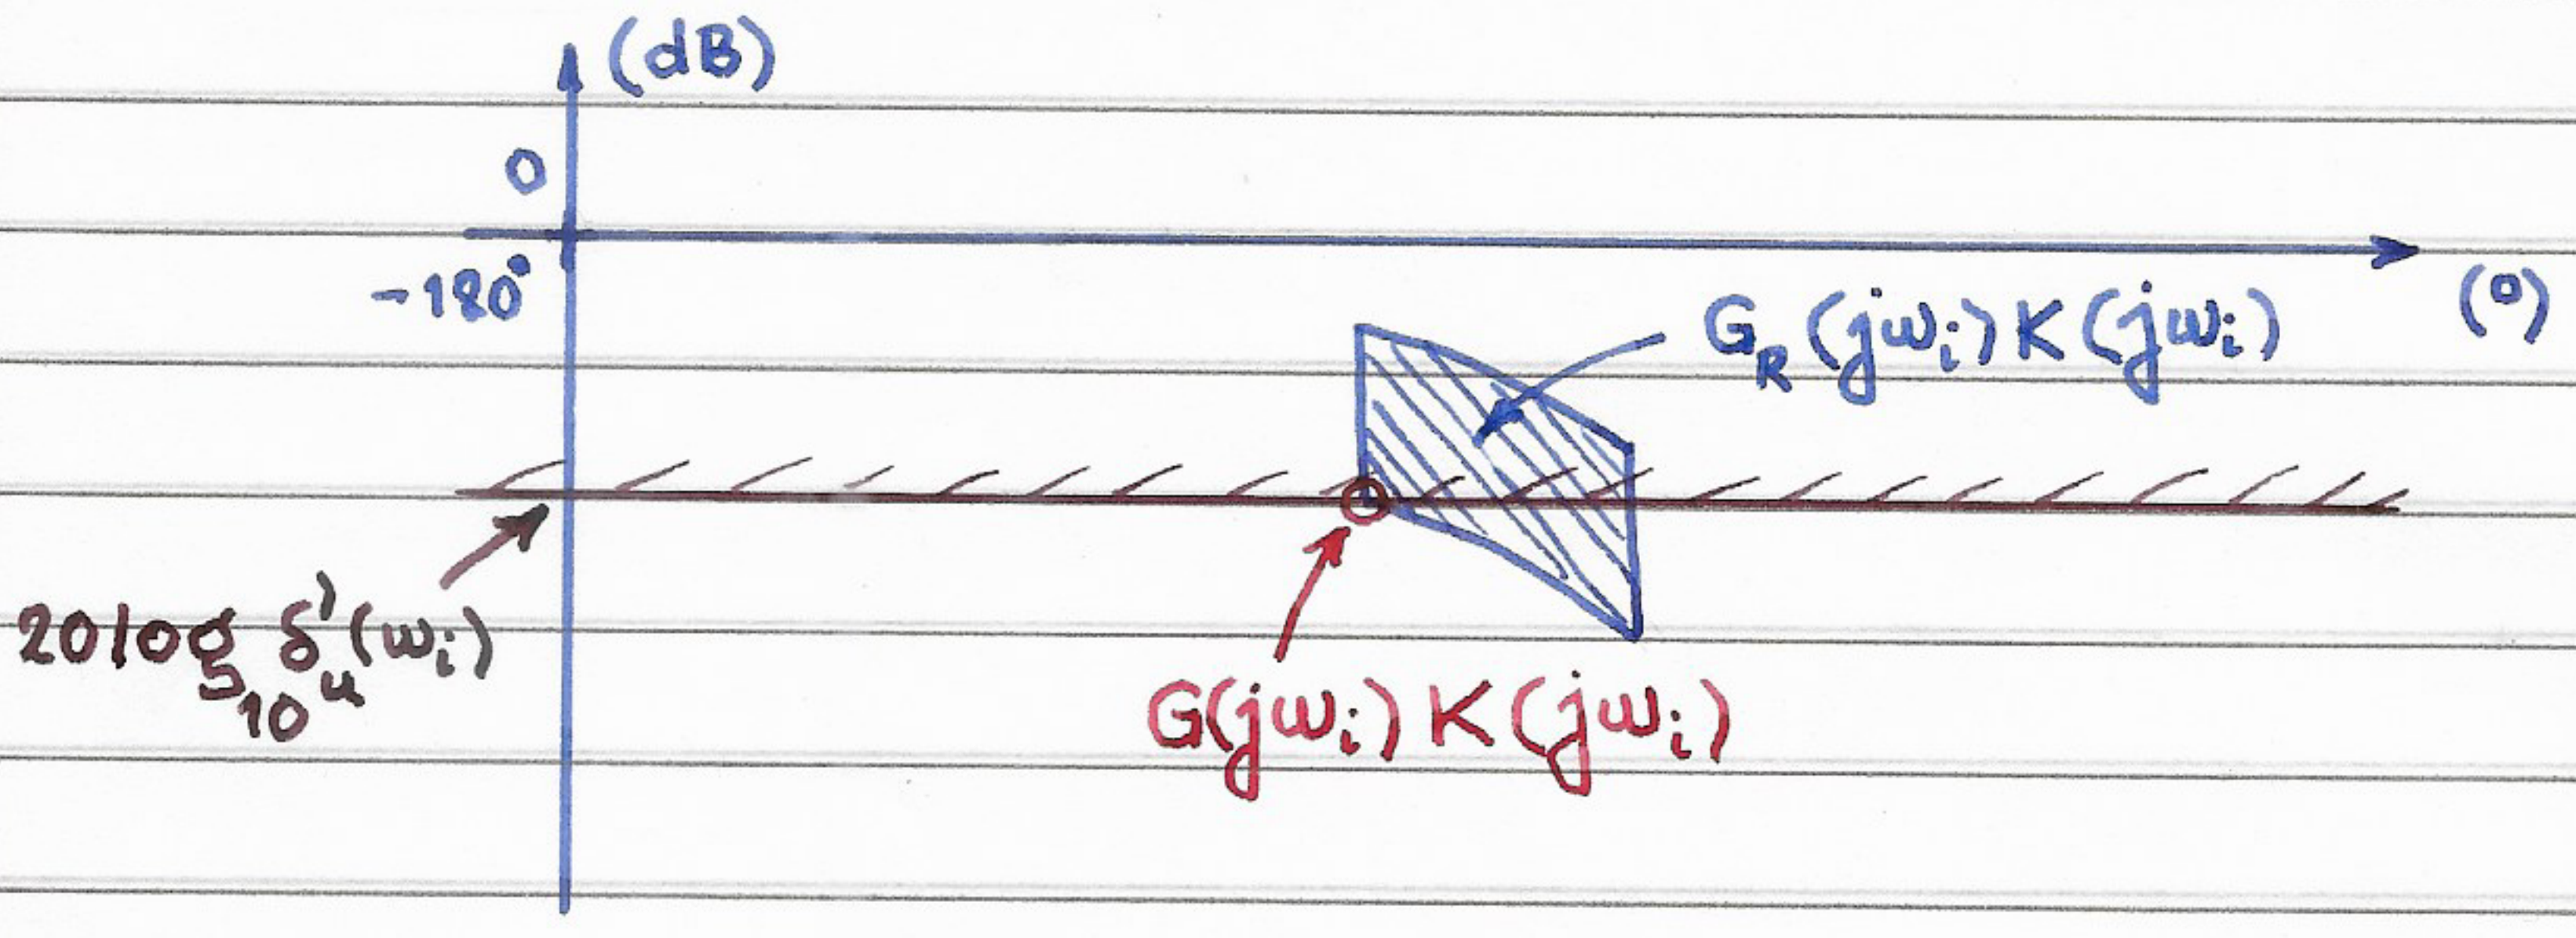 (dB)
0
-180°
(°)
G_R(jω_i)K(jω_i)
20log_10 δ'_u(ω_i)
G(jω_i)K(jω_i)